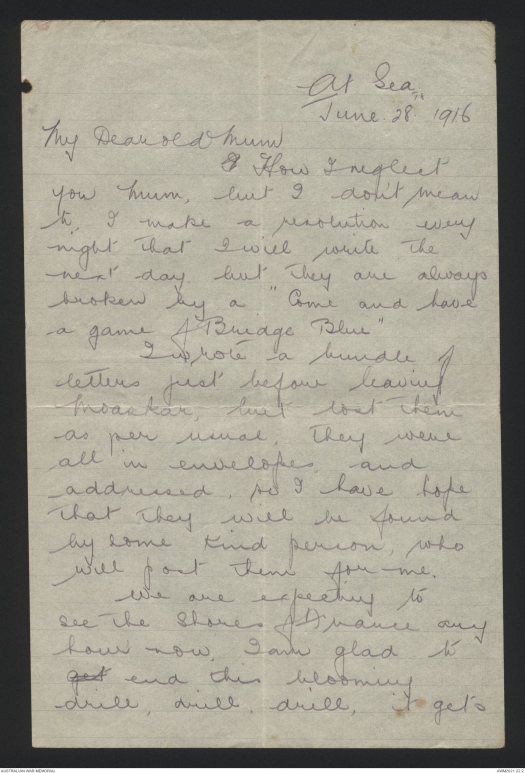 At Sea
June 28th 1916
My Dear old Mum
How I neglect
you Mum, but I don't mean
to I make a resolution every
night that I will write the
next day but they are always
broken by a "Come and have
a game of Bridge Blue"
I wrote a bundle of
letters just before leaving
Moaskar, but lost them
as per usual, they were
all in envelopes, and
addressed, so I have hope
that they will be found
by some kind person, who
will post them for me.
We are expecting to
see the shores of France any
hour now, I am glad to
get end this blooming
drill, drill, drill, it gets
AUSTRALIAN WAR MEMORIAL
AWM2021.22.2